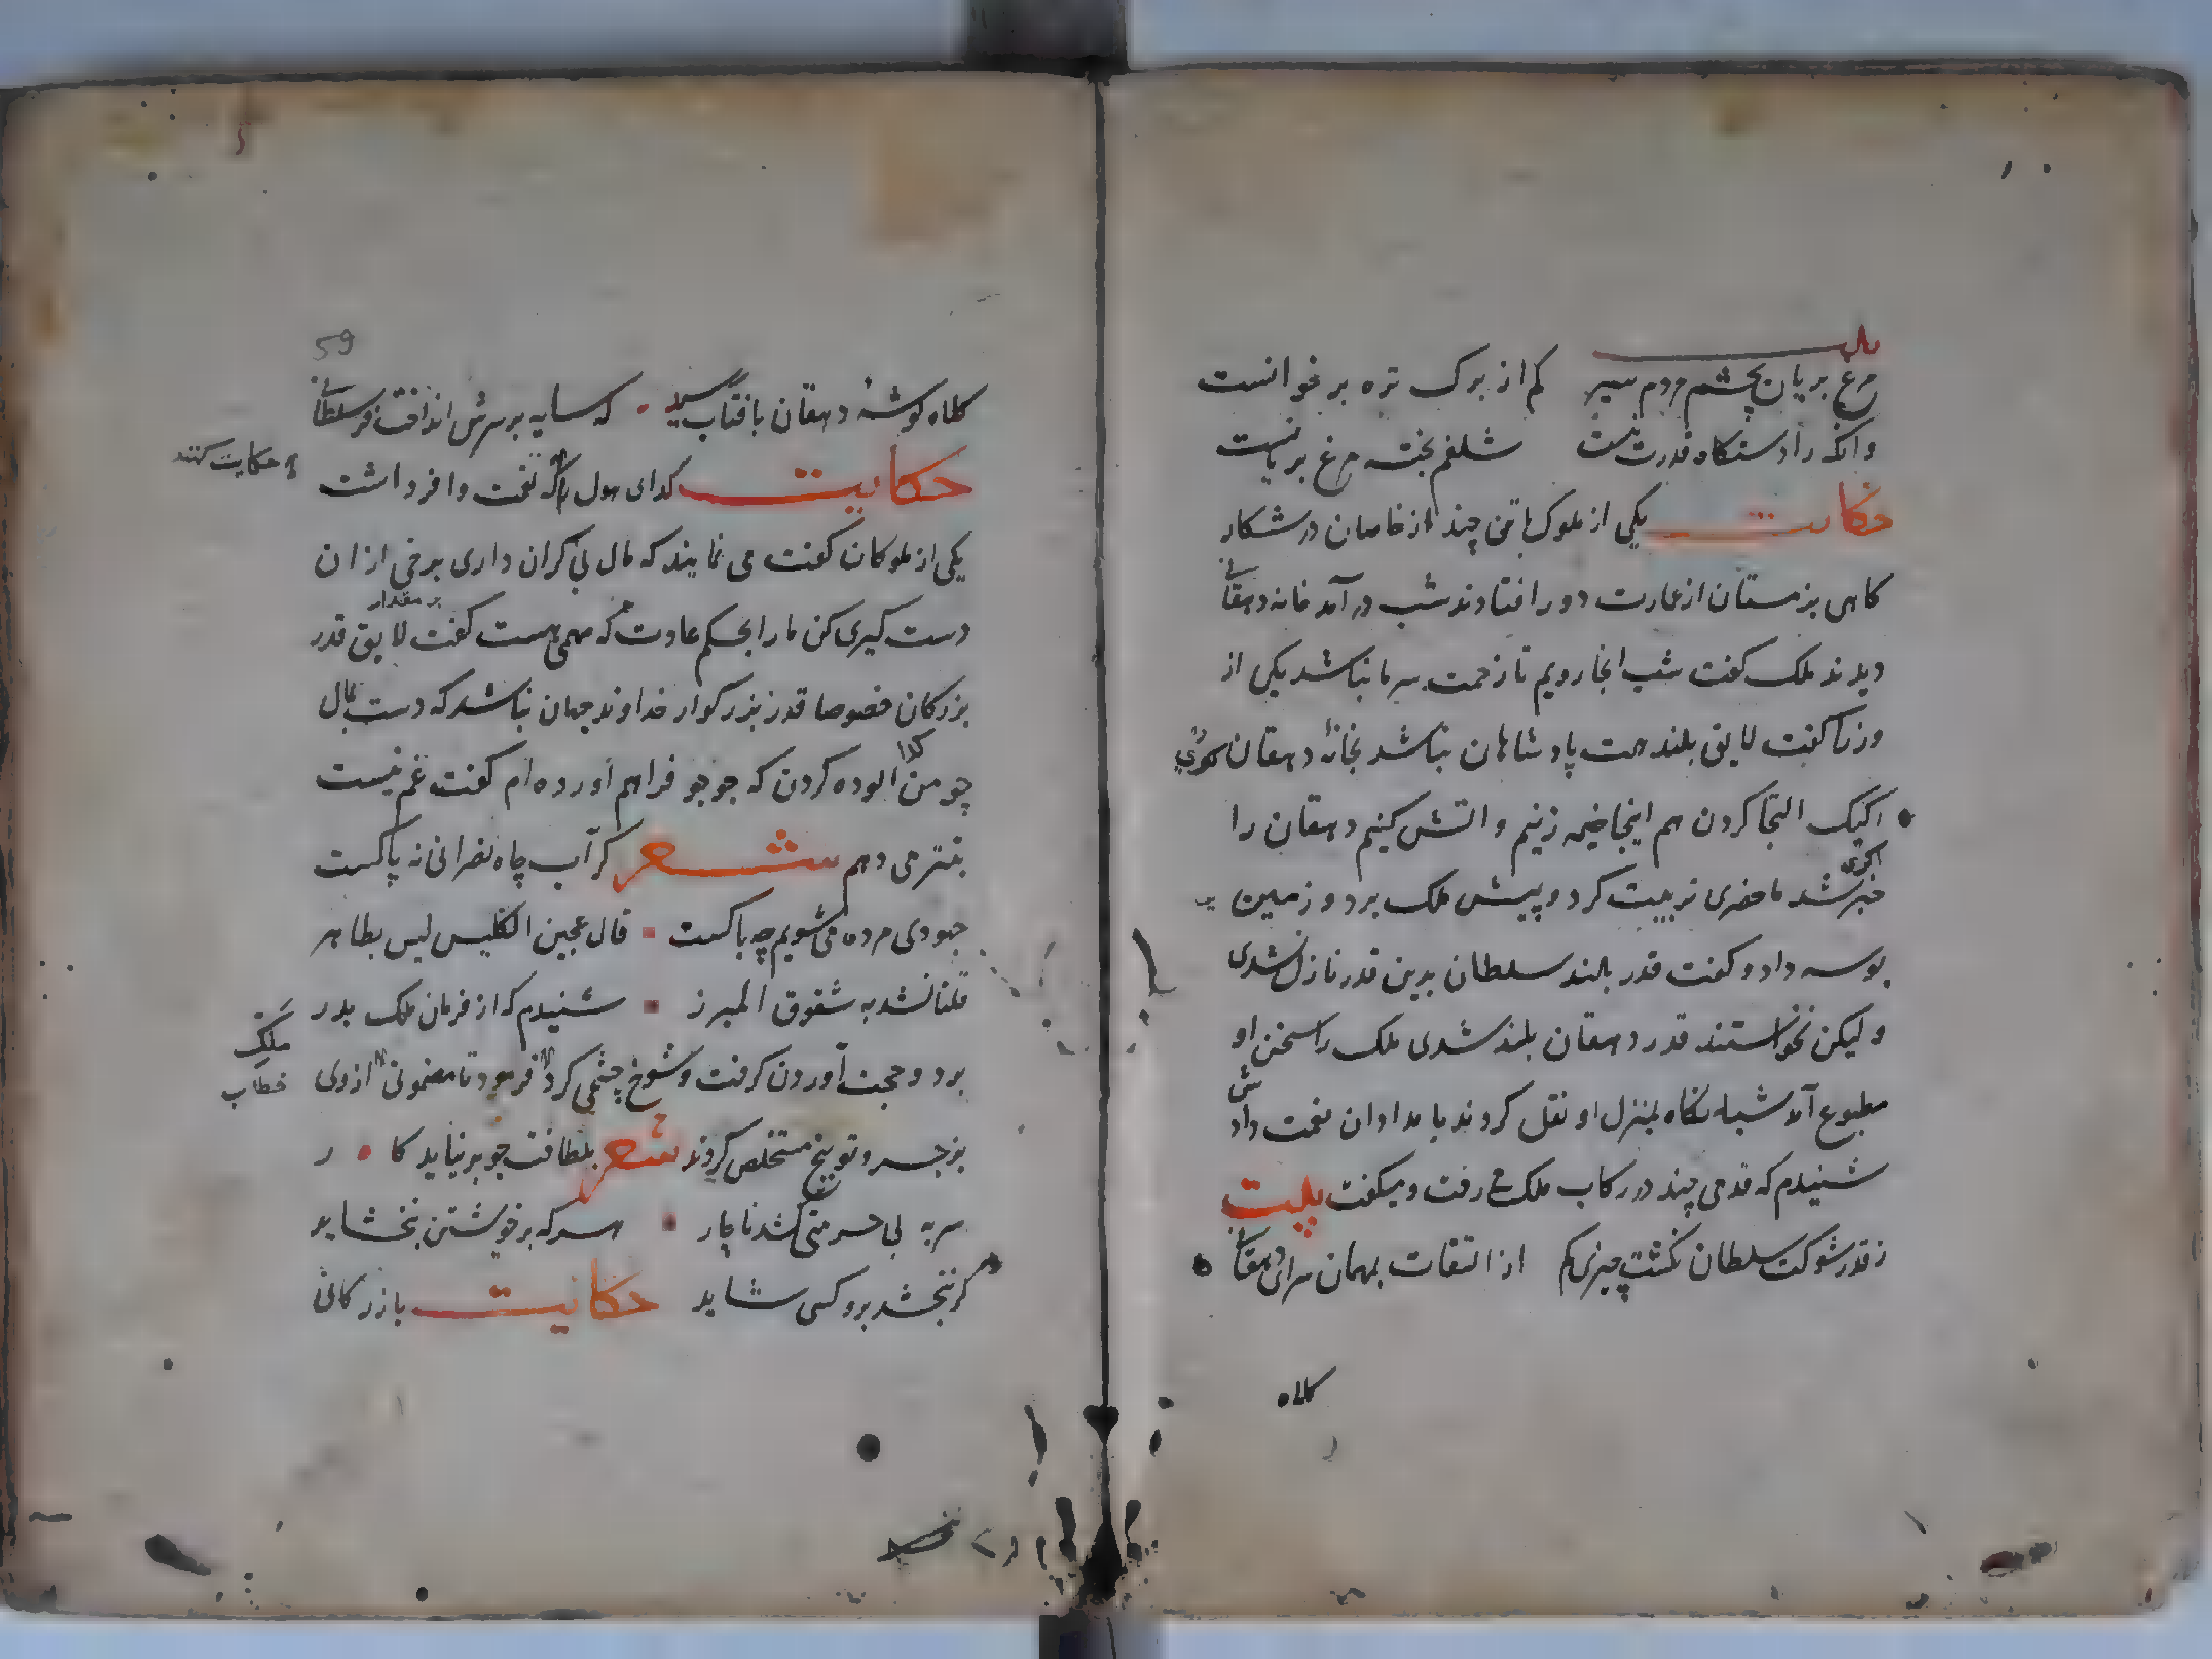 بیت
مرغ بریان بچشم مردم سیر کم از برک تره بر خوانست
وانکه را دستکاه قدرت نیست شلغم پخته مرغ بریانست
حکایت یکی از ملوک با تنی چند از خاصان در شکار
کاهی بزمستان از عمارت دور افتادند شب در آمد خانه دهقانی
دیدند ملک کفت شب انجا رویم تا زحمت سرما نباشد یکی از
وزرا کفت لایق بلند همت پادشاهان نباشد بخانهٔ دهقان
رکیک التجا کردن هم اینجا خیمه زنیم و اتش کنیم دهقان را
خبر شد ما حضری ترتیب کرد و پیش ملک برد و زمین
بوسه داد و کفت قدر بلند سلطان بدین قدر نازل نشدی
و لیکن نخواستند قدر دهقان بلند شدی ملک را سخن او
مطبوع آمد شبانکاه بمنزل او نقل کردند بامدادان نعمت دادش
شنیدم که قدمی چند در رکاب ملک می رفت و میکفت بیت
ز قدر شوکت سلطان نکشت چیزی کم از التفات بمهمان سرای دهقانی
کلاه
59
کلاه کوشهٔ دهقان بافتاب رسید که سایه بر سرش انداخت چو سلطانی
حکایت کدای هول را که نعمت وافر داشت
حکایت کنند
یکی از ملوکان کفت می نمایند که مال بی کران داری برخی از ان
دست کیری کن ما را بحکم عاوت که مهمی هست کفت لایق قدر
بر مقدار
بزرکان خصوصا قدر بزرکوار خداوند جهان نباشد که دست بمال
چو من کدا الوده کردن که جو جو فراهم آورده ام کفت غم نیست
بتتر می دهم شعر کر آب چاه نصرانی نه پاکست
جهودی مرده می شویم چه باکست قال عجین الکلیس لیس بطاهر
قلنا نسد به شقوق المبرز شنیدم که از فرمان ملک بدر
برد و حجت آوردن کرفت و شوخ چشمی کرد فرمود تا مضمون از وی
ملک
خطاب
بزجر و توبیخ مستخلص کردند شعر بلطافت چو بر نیاید کار
سر به بی حرمتی کشد ناچار هر که بر خویشتن نبخشاید
کر نبخشد برو کسی شاید حکایت بازرکانی